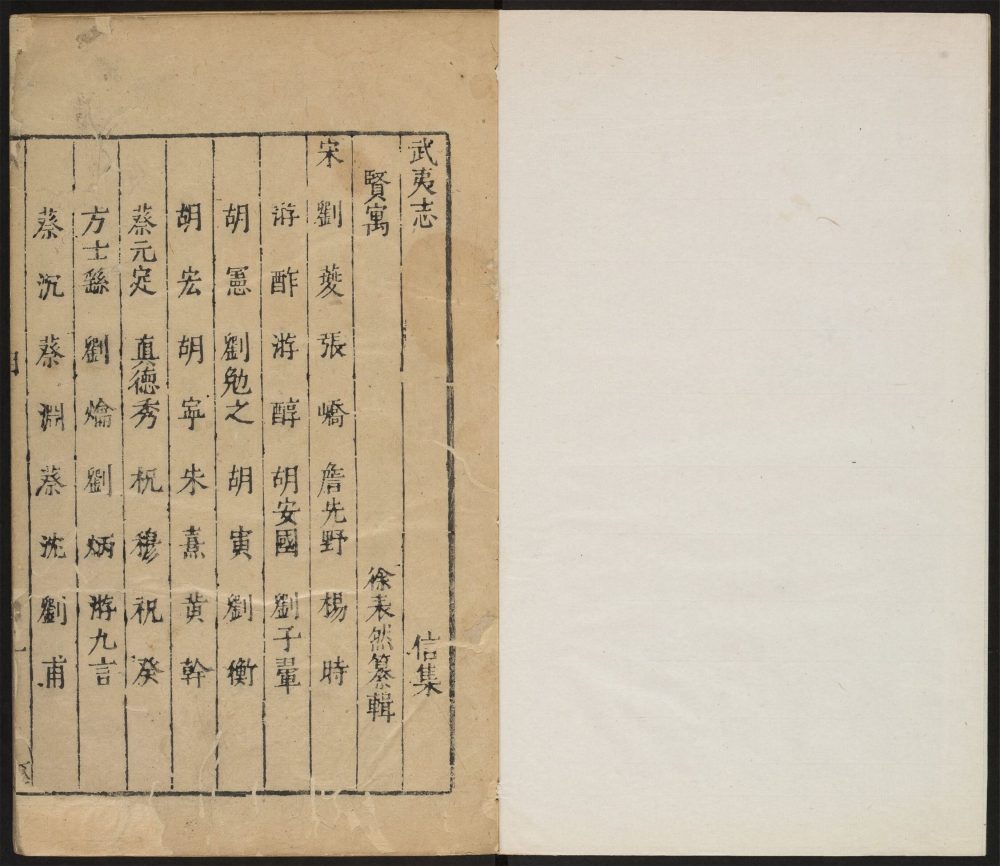 武夷志 信集
賢寓 徐表然纂輯
宋 劉夔 張嵪 詹先野 楊時
游酢 游醇 胡安國 劉子翬
胡憲 劉勉之 胡寅 劉衡
胡宏 胡寧 朱熹 黄幹
蔡元定 真德秀 祝穆 祝癸
方士繇 劉爚 劉炳 游九言
蔡沉 蔡淵 蔡沈 劉甫